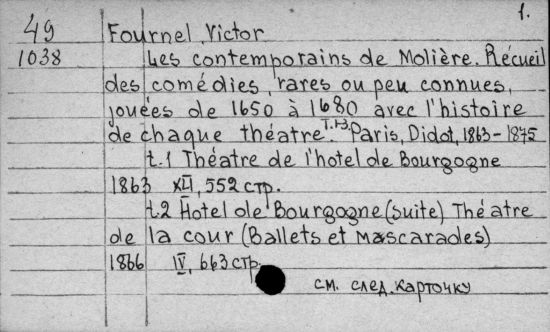 1.
49 Fournel, Victor
1038 Les contemporains de Molière. Récueil
des comédies, rares ou peu connues,
jouées de 1650 à 1680 avec l'histoire
de chaque théatre. T.1-3. Paris, Didot, 1863-1875
t.1 Théatre de l'hotel de Bourgogne
1863 XLI, 552 стр.
t.2 Hotel de Bourgogne (suite) Théatre
de la cour (Ballets et Mascarades)
1866 IV, 663 стр.
см. след. карточку